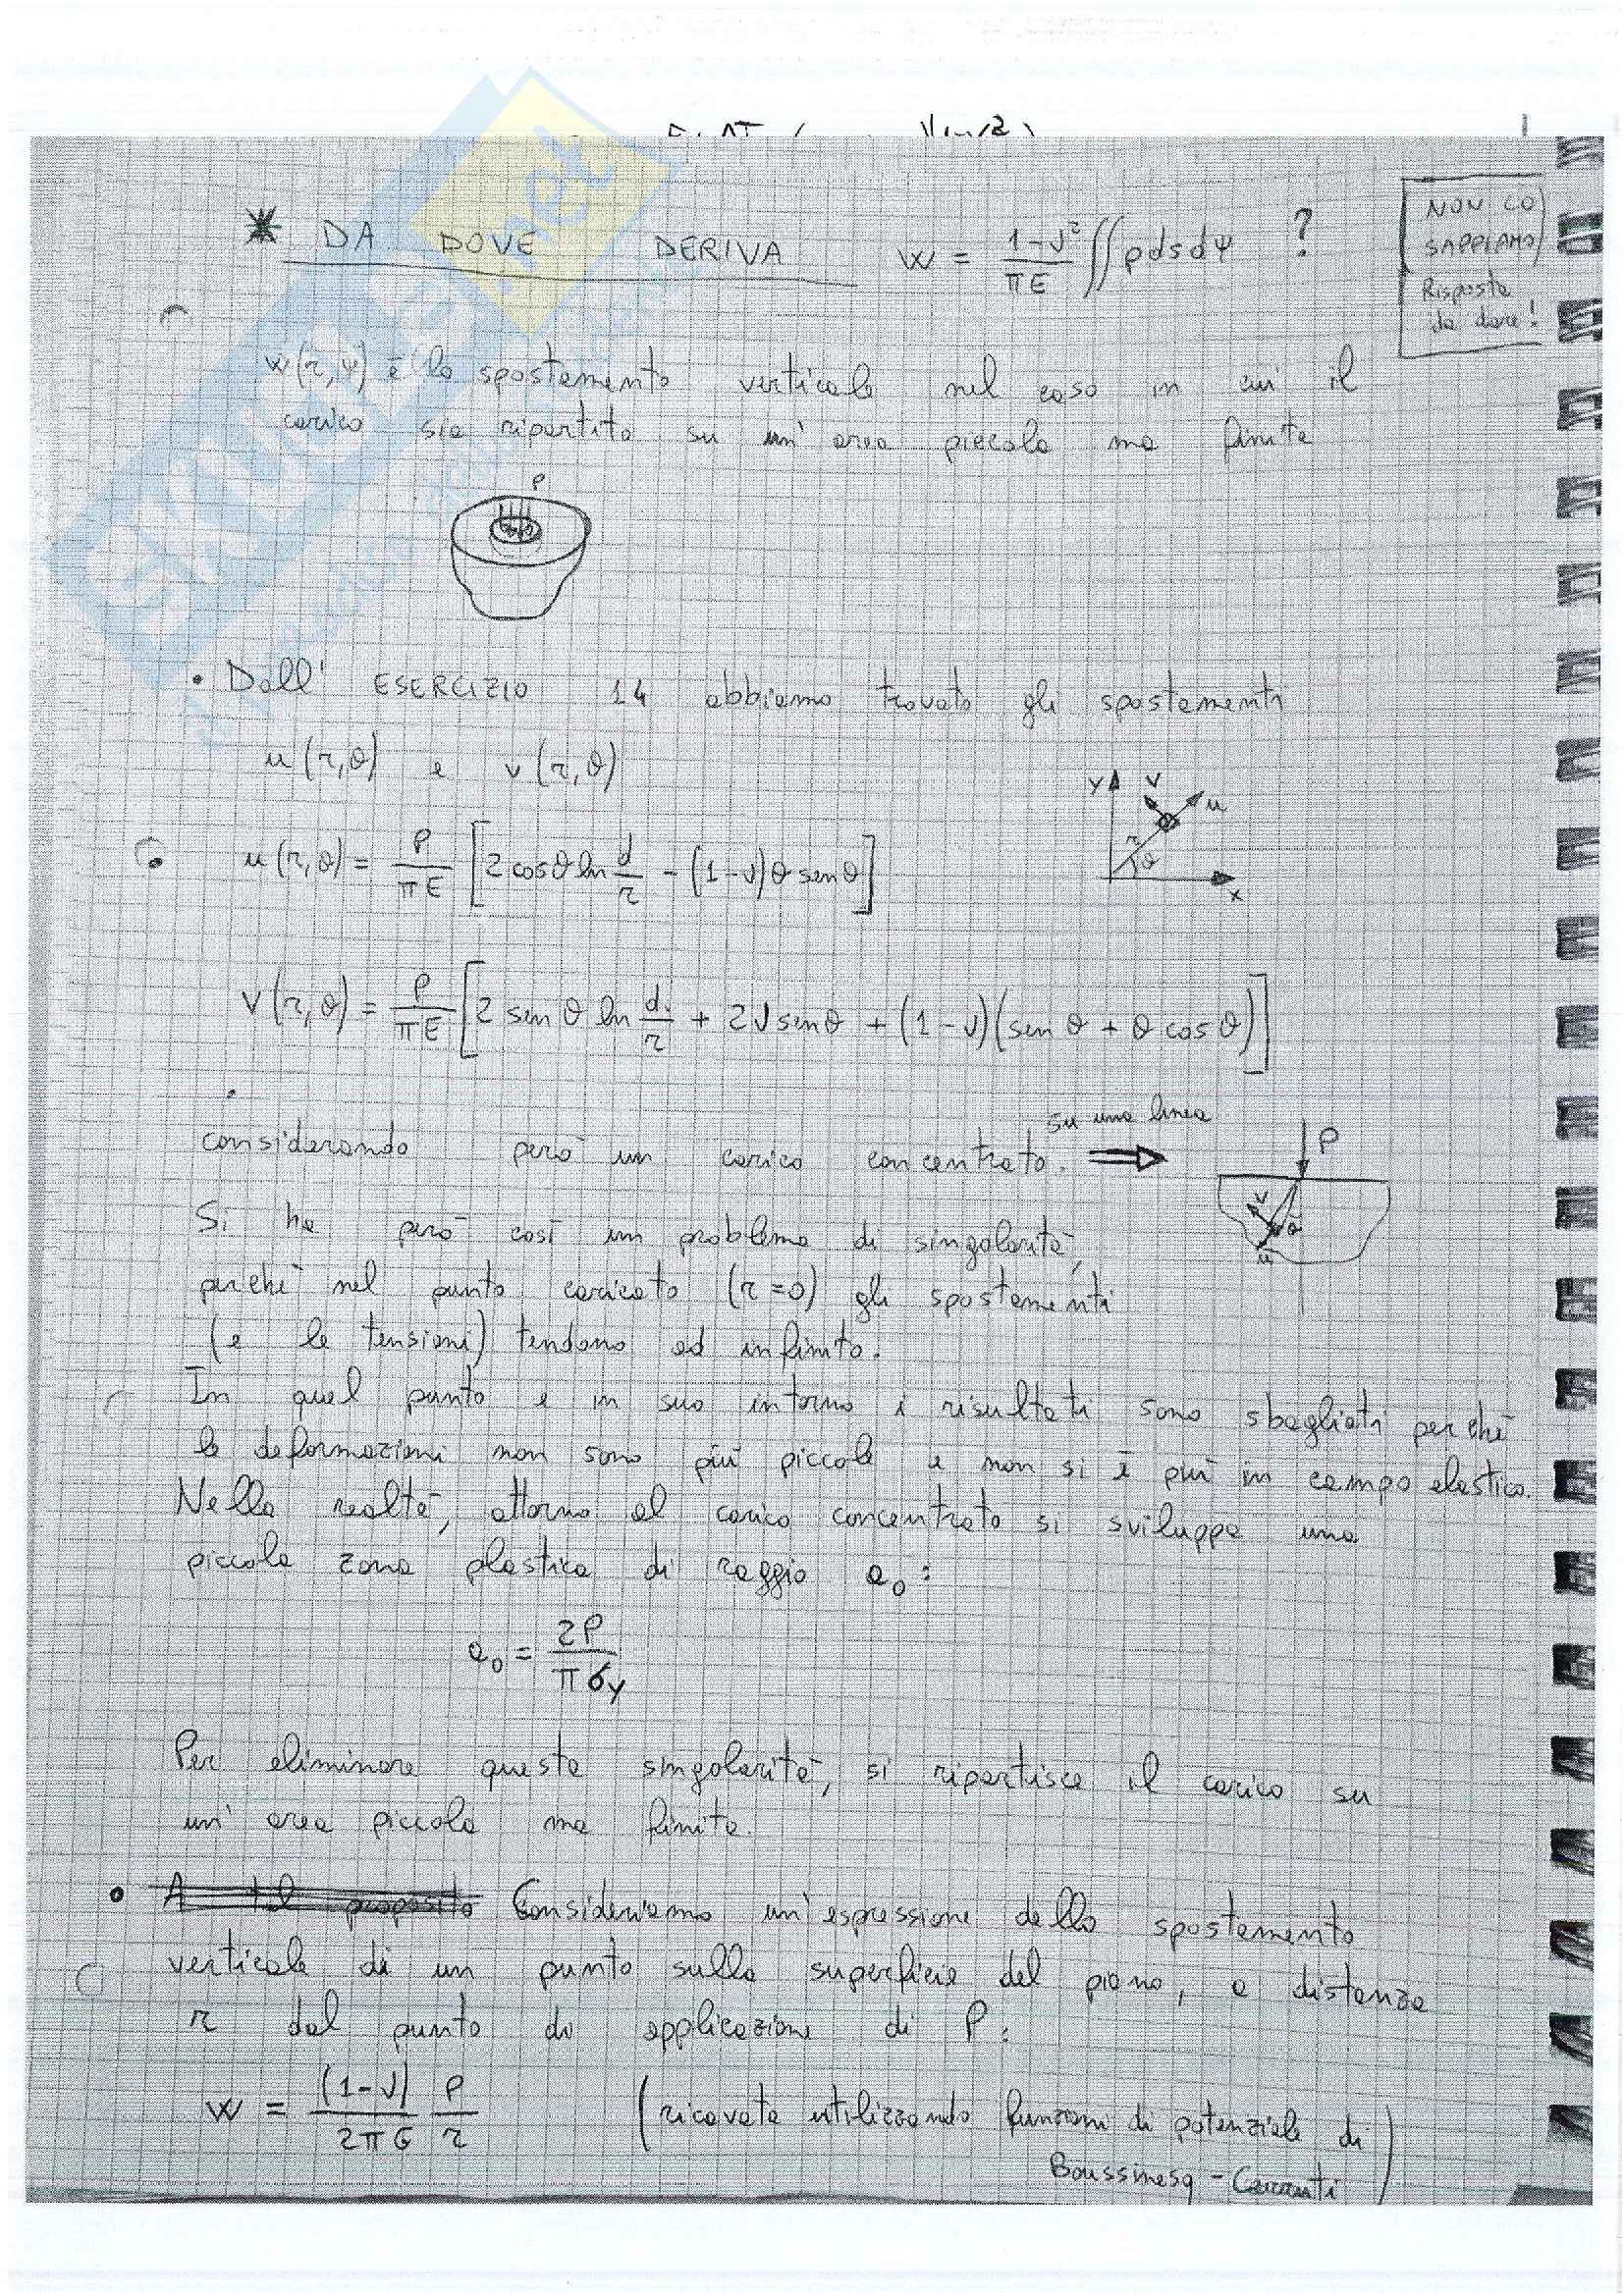 * DA DOVE DERIVA w = (1-ν²)/(πE) ∬ p ds dψ ?
NON LO
SAPPIAMO
Risposta
da dare!
w(r,ψ) è lo spostamento verticale nel caso in cui il
carico sia ripartito su un'area piccola ma finita
P
• Dall' ESERCIZIO 14 abbiamo trovato gli spostamenti
u(r,θ) e v(r,θ)
y v u r θ x
u(r,θ) = P/(πE) [2 cosθ ln d/r - (1-ν)θ senθ]
v(r,θ) = P/(πE) [2 sen θ ln d/r + 2ν senθ + (1-ν)(sen θ + θ cos θ)]
considerando però un carico concentrato. ⇒ su una linea
P
v θ u
Si ha però così un problema di singolarità,
perchè nel punto caricato (r=0) gli spostamenti
(e le tensioni) tendono ad infinito.
In quel punto e in suo intorno i risultati sono sbagliati perchè
le deformazioni non sono più piccole e non si è più in campo elastico.
Nella realtà, attorno al carico concentrato si sviluppa una
piccola zona plastica di raggio a₀:
a₀ = 2P/(πσy)
Per eliminare questa singolarità, si ripartisce il carico su
un' area piccola ma finita.
• A tal proposito Consideriamo un'espressione dello spostamento
verticale di un punto sulla superficie del piano, a distanza
r dal punto di applicazione di P:
w = (1-ν)/(2πG) P/r (ricavata utilizzando funzioni di potenziale di
Boussinesq - Cerruti)
SKUOLA.net